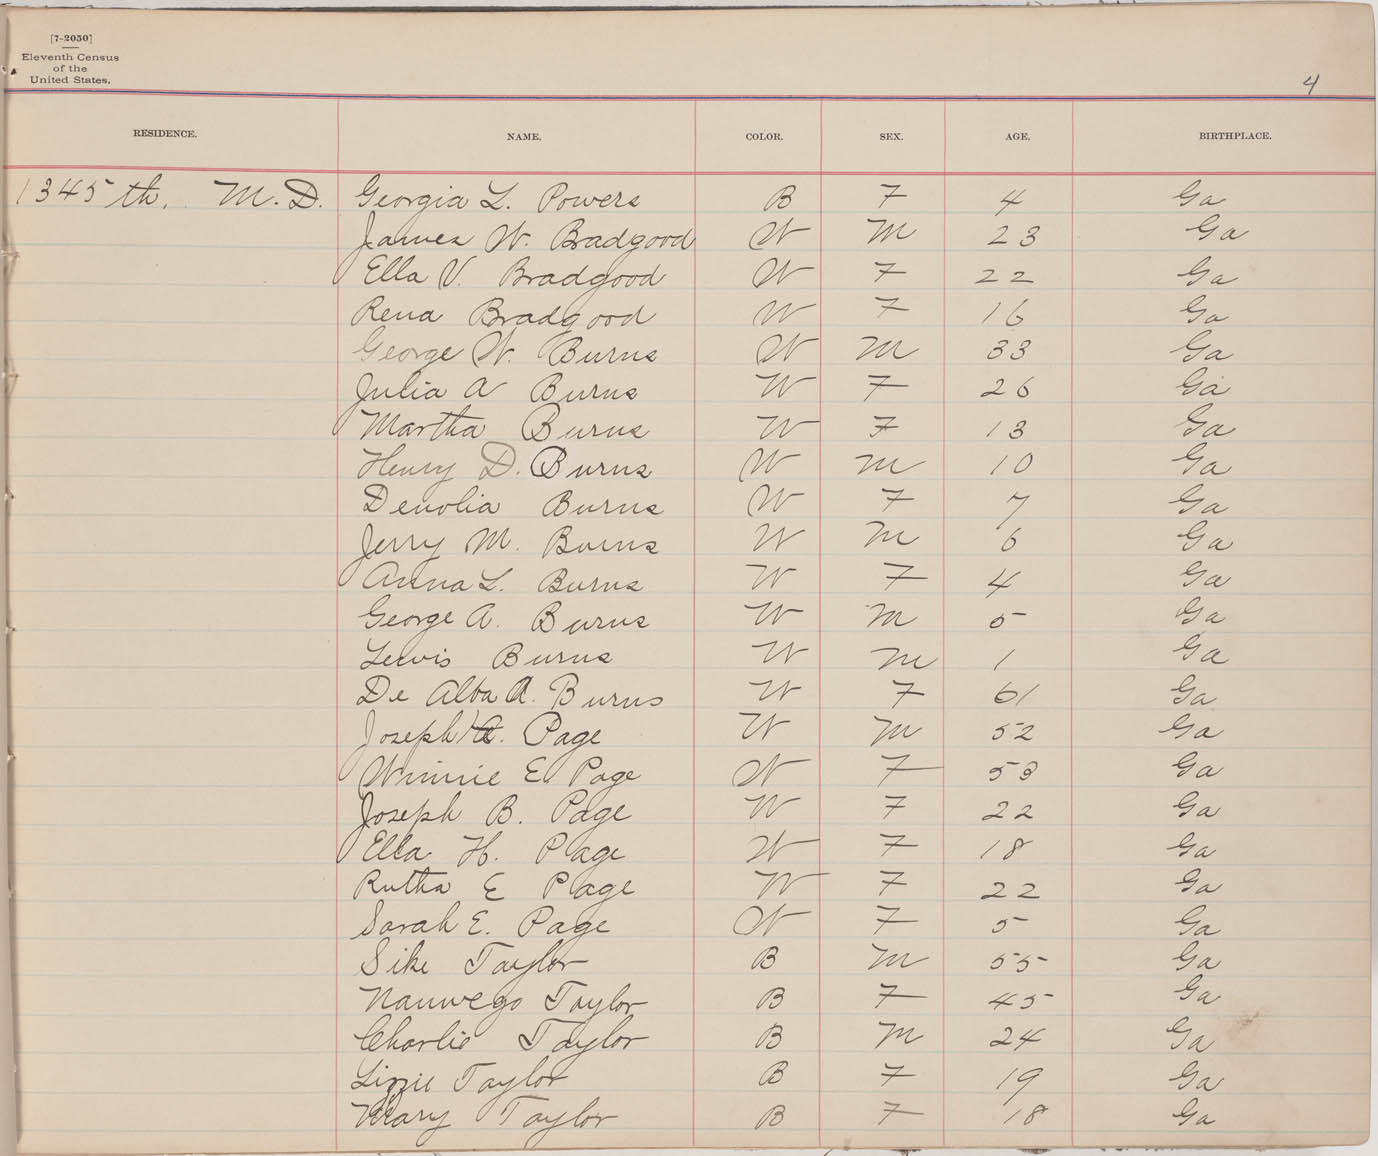 [7-2050]
Eleventh Census
of the
United States.
4
RESIDENCE. NAME. COLOR. SEX. AGE. BIRTHPLACE.
1345th. M.D. Georgia L. Powers B F 4 Ga
James W. Bradgood W M 23 Ga
Ella V. Bradgood W F 22 Ga
Rena Bradgood W F 16 Ga
George W. Burns W M 33 Ga
Julia A Burns W F 26 Ga
Martha Burns W F 13 Ga
Henry D. Burns W M 10 Ga
Denolia Burns W F 7 Ga
Jerry M. Burns W M 6 Ga
Anna L. Burns W F 4 Ga
George A. Burns W M 5 Ga
Lewis Burns W M 1 Ga
De Alba A. Burns W F 61 Ga
Joseph A. Page W M 52 Ga
Winnie E Page W F 53 Ga
Joseph B. Page W F 22 Ga
Ella H. Page W F 18 Ga
Rutha E Page W F 22 Ga
Sarah E. Page W F 5 Ga
Sike Taylor B M 55 Ga
Taylor B F 45 Ga
Charlie Taylor B M 24 Ga
Lizzie Taylor B F 19 Ga
Mary Taylor B F 18 Ga